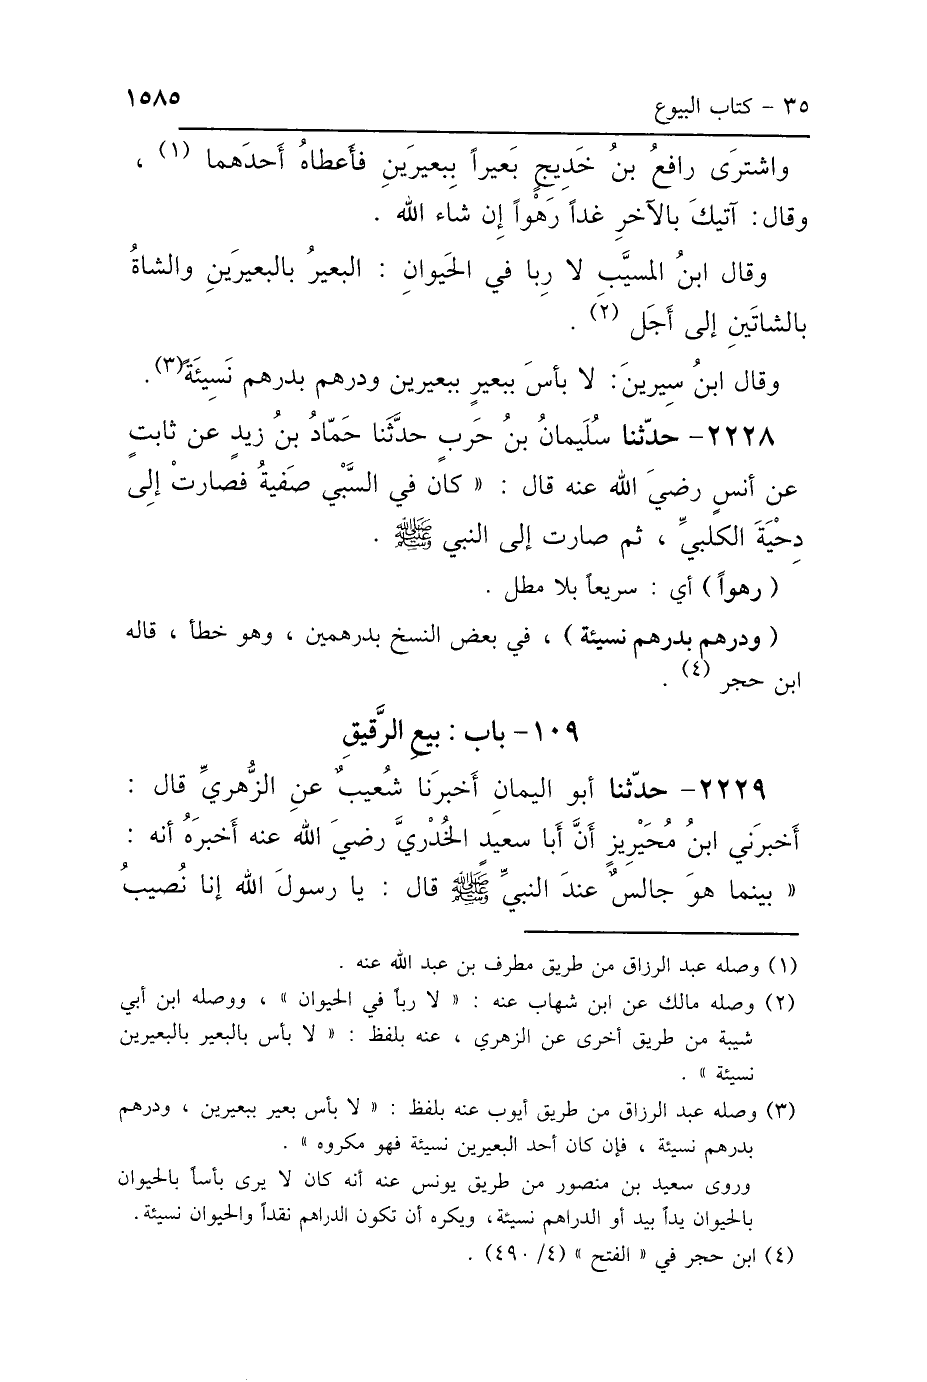 ٣٥ - كتاب البيوع ١٥٨٥
واشترَى رافعُ بنُ خَدِيجٍ بَعيراً بِبعيرَينِ فأَعطاهُ أَحدَهما (١) ،
وقال: آتيكَ بالآخرِ غداً رَهْواً إن شاء الله .
وقال ابنُ المسيَّبِ لا رِبا في الحَيوانِ : البعيرُ بالبعيرَينِ والشاةُ
بالشاتَينِ إلى أَجَل (٢) .
وقال ابنُ سيرينَ: لا بأسَ ببعيرٍ ببعيرين ودرهم بدرهم نَسِيئَةً(٣).
٢٢٢٨- حدّثنا سُلَيمانُ بنُ حَربٍ حدَّثَنا حَمّادُ بنُ زيدٍ عن ثابتٍ
عن أنسٍ رضيَ الله عنه قال : « كان في السَّبْيِ صَفيةُ فصارتْ إلى
دِحْيَةَ الكلبيِّ ، ثم صارت إلى النبي ﷺ .
( رهواً ) أي : سريعاً بلا مطل .
( ودرهم بدرهم نسيئة ) ، في بعض النسخ بدرهمين ، وهو خطأ ، قاله
ابن حجر (٤) .
١٠٩- باب : بيعِ الرَّقيقِ
٢٢٢٩- حدّثنا أبو اليمانِ أَخبرَنا شُعيبٌ عنِ الزُّهريِّ قال :
أَخبرَني ابنُ مُحَيْرِيزٍ أَنَّ أبا سعيدٍ الخُدْريَّ رضيَ الله عنه أَخبرَهُ أنه :
« بينما هوَ جالسٌ عندَ النبيِّ ﷺ قال : يا رسولَ الله إنا نُصيبُ
(١) وصله عبد الرزاق من طريق مطرف بن عبد الله عنه .
(٢) وصله مالك عن ابن شهاب عنه : « لا رباً في الحيوان » ، ووصله ابن أبي
شيبة من طريق أخرى عن الزهري ، عنه بلفظ : « لا بأس بالبعير بالبعيرين
نسيئة » .
(٣) وصله عبد الرزاق من طريق أيوب عنه بلفظ : « لا بأس بعير ببعيرين ، ودرهم
بدرهم نسيئة ، فإن كان أحد البعيرين نسيئة فهو مكروه » .
وروى سعيد بن منصور من طريق يونس عنه أنه كان لا يرى بأساً بالحيوان
بالحيوان يداً بيد أو الدراهم نسيئة، ويكره أن تكون الدراهم نقداً والحيوان نسيئة.
(٤) ابن حجر في « الفتح » (٤/ ٤٩٠) .